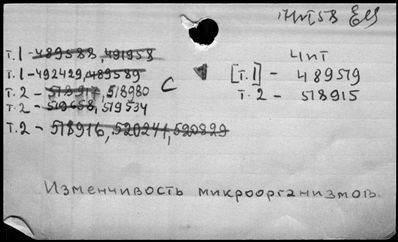 т.1 - 489588, 491958
т.1 - 492429, 489589
т.2 - 518917, 518980
т.2 - 519658, 519534
т.2 - 518916, 520241, 520829
С
Чит
[т.1] - 489519
т.2 - 518915
Изменчивость микроорганизмов.